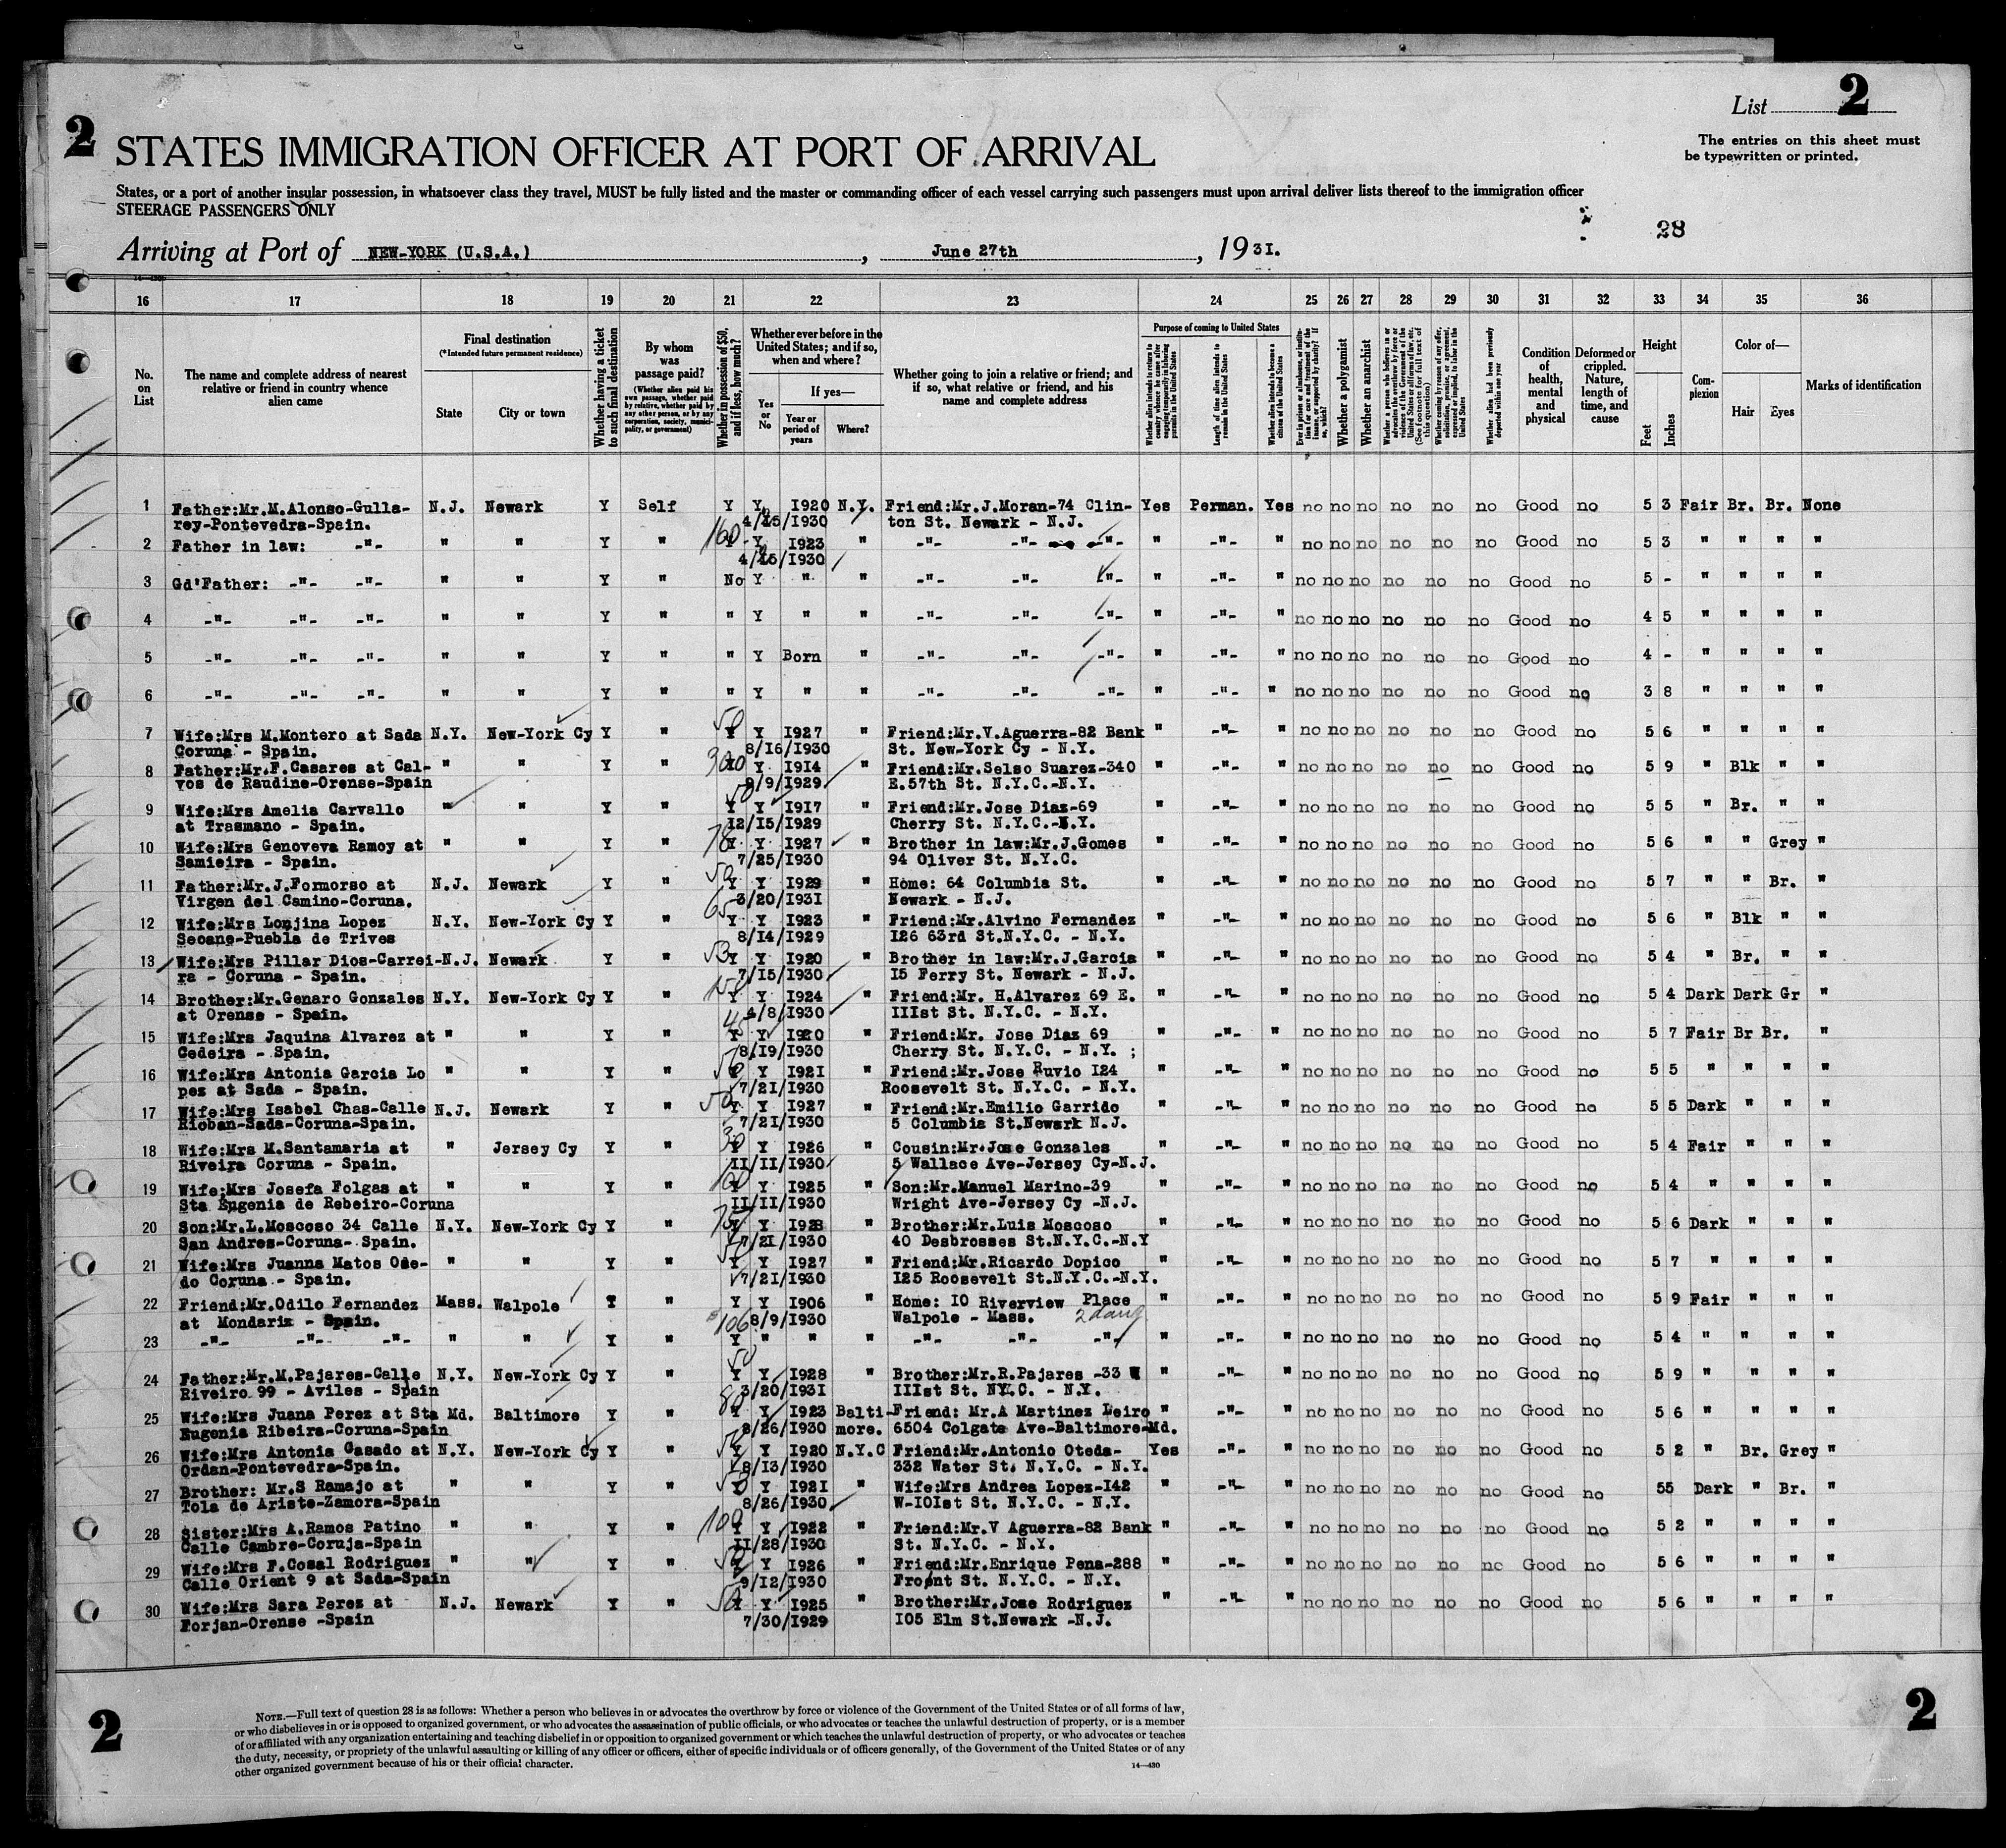 List 2
2
The entries on this sheet must
be typewritten or printed.
STATES IMMIGRATION OFFICER AT PORT OF ARRIVAL
States, or a port of another insular possession, in whatsoever class they travel, MUST be fully listed and the master or commanding officer of each vessel carrying such passengers must upon arrival deliver lists thereof to the immigration officer
STEERAGE PASSENGERS ONLY
28
Arriving at Port of NEW-YORK (U.S.A.), June 27th, 1931.
16 17 18 19 20 21 22 23 24 25 26 27 28 29 30 31 32 33 34 35 36
No. on List
The name and complete address of nearest relative or friend in country whence alien came
Final destination
(*Intended future permanent residence)
State
City or town
Whether having a ticket to such final destination
By whom was passage paid?
(Whether alien paid his own passage, whether paid by relative, whether paid by any other person, or by any corporation, society, municipality, or government)
Whether in possession of $50, and if less, how much?
Whether ever before in the United States; and if so, when and where?
Yes or No
If yes—
Year or period of years
Where?
Whether going to join a relative or friend; and if so, what relative or friend, and his name and complete address
Purpose of coming to United States
Whether alien intends to return to country whence he came after engaging temporarily in laboring pursuits in the United States
Length of time alien intends to remain in the United States
Whether alien intends to become a citizen of the United States
Ever in prison or almshouse, or institution for care and treatment of the insane, or supported by charity? If so, which?
Whether a polygamist
Whether an anarchist
Whether a person who believes in or advocates the overthrow by force or violence of the Government of the United States or all forms of law, etc. (See footnote for full text of this question)
Whether coming by reason of any offer, solicitation, promise, or agreement, expressed or implied, to labor in the United States
Whether alien had been previously deported within one year
Condition of health, mental and physical
Deformed or crippled. Nature, length of time, and cause
Height
Feet
Inches
Complexion
Color of—
Hair
Eyes
Marks of identification
1 Father:Mr.M.Alonso-Gulla- N.J. Newark Y Self Y Y 1920 N.Y. Friend:Mr.J.Moran-74 Clin- Yes Perman. Yes no no no no no no Good no 5 3 Fair Br. Br. None
rey-Pontevedra-Spain. 4/25/1930 ton St. Newark - N.J.
2 Father in law: -"- " " Y " 160 Y Y 1923 " -"- -"- -"- " " -"- " no no no no no no Good no 5 3 " " " "
4/25/1930
3 Gd'Father: -"- -"- " " Y " No Y " " -"- -"- -"- " -"- " no no no no no no Good no 5 - " " " "
4 -"- -"- -"- " " Y " " Y " " -"- -"- -"- " -"- " no no no no no no Good no 4 5 " " " "
5 -"- -"- -"- " " Y " " Y Born " -"- -"- -"- " -"- " no no no no no no Good no 4 - " " " "
6 -"- -"- -"- " " Y " " Y " " -"- -"- -"- " -"- " no no no no no no Good no 3 8 " " " "
7 Wife:Mrs M.Montero at Sada N.Y. New-York Cy Y " 50 Y Y 1927 " Friend:Mr.V.Aguerra-82 Bank " -"- " no no no no no no Good no 5 6 " " " "
Coruna - Spain. 8/16/1930 St. New-York Cy - N.Y.
8 Father:Mr.F.Casares at Cal- " " Y " 300 Y Y 1914 " Friend:Mr.Selso Suarez-340 " -"- " no no no no no no Good no 5 9 " Blk " "
vos de Raudine-Orense-Spain 9/9/1929 E.57th St. N.Y.C.-N.Y.
9 Wife:Mrs Amelia Carvallo " " Y " 50 Y Y 1917 " Friend:Mr.Jose Diaz-69 " -"- " no no no no no no Good no 5 5 " Br. " "
at Trasmano - Spain. 12/15/1929 Cherry St. N.Y.C.-N.Y.
10 Wife:Mrs Genoveva Ramoy at " " Y " 78 Y Y 1927 " Brother in law:Mr.J.Gomes " -"- " no no no no no no Good no 5 6 " " Grey "
Samieira - Spain. 7/25/1930 94 Oliver St. N.Y.C.
11 Father:Mr.J.Formorso at N.J. Newark Y " 50 Y Y 1929 " Home: 64 Columbia St. " -"- " no no no no no no Good no 5 7 " " Br. "
Virgen del Camino-Coruna. 3/20/1931 Newark - N.J.
12 Wife:Mrs Lonjina Lopez N.Y. New-York Cy Y " 65 Y Y 1923 " Friend:Mr.Alvino Fernandez " -"- " no no no no no no Good no 5 6 " Blk " "
Seoane-Puebla de Trives 8/14/1929 126 63rd St.N.Y.C. - N.Y.
13 Wife:Mrs Pillar Dios-Carrei- N.J. Newark Y " 53 Y Y 1920 " Brother in law:Mr.J.Garcia " -"- " no no no no no no Good no 5 4 " Br. " "
ra - Coruna - Spain. 7/15/1930 15 Ferry St. Newark - N.J.
14 Brother:Mr.Genaro Gonzales N.Y. New-York Cy Y " 150 Y Y 1924 " Friend:Mr. H.Alvarez 69 E. " -"- " no no no no no no Good no 5 4 Dark Dark Gr "
at Orense - Spain. 4/8/1930 111st St. N.Y.C. - N.Y.
15 Wife:Mrs Jaquina Alvarez at " " Y " 45 Y Y 1920 " Friend:Mr. Jose Diaz 69 " -"- " no no no no no no Good no 5 7 Fair Br Br. "
Cedeira - Spain. 8/19/1930 Cherry St. N.Y.C. - N.Y. ;
16 Wife:Mrs Antonia Garcia Lo " " Y " 50 Y Y 1921 " Friend:Mr.Jose Ruvio 124 " -"- " no no no no no no Good no 5 5 " " " "
pez at Sada - Spain. 7/21/1930 Roosevelt St. N.Y.C. - N.Y.
17 Wife:Mrs Isabel Chas-Calle N.J. Newark Y " 50 Y Y 1927 " Friend:Mr.Emilio Garrido " -"- " no no no no no no Good no 5 5 Dark " " "
Rioban-Sada-Coruna-Spain. 7/21/1930 5 Columbia St.Newark N.J.
18 Wife:Mrs M.Santamaria at " Jersey Cy Y " 30 Y Y 1926 " Cousin:Mr.Jose Gonzales " -"- " no no no no no no Good no 5 4 Fair " " "
Riveira Coruna - Spain. 11/11/1930 5 Wallace Ave-Jersey Cy-N.J.
19 Wife:Mrs Josefa Folgas at " " Y " 160 Y Y 1925 " Son:Mr.Manuel Marino-39 " -"- " no no no no no no Good no 5 4 " " " "
Sta Eugenia de Rebeiro-Coruna 11/11/1930 Wright Ave-Jersey Cy -N.J.
20 Son:Mr.L.Moscoso 34 Calle N.Y. New-York Cy Y " 75 Y Y 1928 " Brother:Mr.Luis Moscoso " -"- " no no no no no no Good no 5 6 Dark " " "
San Andres-Coruna- Spain. 7/21/1930 40 Desbrosses St.N.Y.C.-N.Y
21 Wife:Mrs Juanna Matos Ode- " " Y " 50 Y Y 1927 " Friend:Mr.Ricardo Dopico " -"- " no no no no no no Good no 5 7 " " " "
do Coruna - Spain. 7/21/1930 125 Roosevelt St.N.Y.C.-N.Y.
22 Friend:Mr.Odilo Fernandez Mass. Walpole Y " Y Y 1906 " Home: 10 Riverview Place " -"- " no no no no no no Good no 5 9 Fair " " "
at Mondariz - Spain. 106 8/9/1930 Walpole - Mass. 2 daug
23 -"- -"- -"- " " Y " Y " " " -"- -"- -"- " -"- " no no no no no no Good no 5 4 " " " "
24 Father:Mr.M.Pajares-Calle N.Y. New-York Cy Y " 50 Y Y 1928 " Brother:Mr.R.Pajares -33 W " -"- " no no no no no no Good no 5 9 " " " "
Riveiro 99 - Aviles - Spain 3/20/1931 111st St. NY.C. - N.Y.
25 Wife:Mrs Juana Perez at Sta Md. Baltimore Y " 80 Y Y 1923 Balti- Friend: Mr.A Martinez Leiro " -"- " no no no no no no Good no 5 6 " " " "
Eugenia Ribeira-Coruna-Spain 8/26/1930 more. 6504 Colgate Ave-Baltimore-Md.
26 Wife:Mrs Antonia Casado at N.Y. New-York Cy Y " 50 Y Y 1920 N.Y.C Friend:Mr.Antonio Oteda- Yes -"- " no no no no no no Good no 5 2 " Br. Grey "
Ordan-Pontevedra-Spain. 8/13/1930 332 Water St. N.Y.C. - N.Y.
27 Brother: Mr.S Ramajo at " " Y " 50 Y Y 1921 " Wife:Mrs Andrea Lopez-142 " -"- " no no no no no no Good no 55 Dark " Br. "
Tola de Ariste-Zamora-Spain 8/26/1930 W-101st St. N.Y.C. - N.Y.
28 Sister:Mrs A.Ramos Patino " " Y " 100 Y Y 1922 " Friend:Mr.V Aguerra-82 Bank " -"- " no no no no no no Good no 5 2 " " " "
Calle Cambre-Coruja-Spain 11/28/1930 St. N.Y.C. - N.Y.
29 Wife:Mrs F.Cosal Rodriguez " " Y " 50 Y Y 1926 " Friend:Mr.Enrique Pena-288 " -"- " no no no no no no Good no 5 6 " " " "
Calle Orient 9 at Sada-Spain 9/12/1930 Front St. N.Y.C. - N.Y.
30 Wife:Mrs Sara Perez at N.J. Newark Y " 50 Y Y 1925 " Brother:Mr.Jose Rodriguez " -"- " no no no no no no Good no 5 6 " " " "
Forjan-Orense -Spain 7/30/1929 105 Elm St.Newark -N.J.
2
2
NOTE.—Full text of question 28 is as follows: Whether a person who believes in or advocates the overthrow by force or violence of the Government of the United States or of all forms of law,
or who disbelieves in or is opposed to organized government, or who advocates the assassination of public officials, or who advocates or teaches the unlawful destruction of property, or is a member
of or affiliated with any organization entertaining and teaching disbelief in or opposition to organized government or which teaches the unlawful destruction of property, or who advocates or teaches
the duty, necessity, or propriety of the unlawful assaulting or killing of any officer or officers, either of specific individuals or of officers generally, of the Government of the United States or of any
other organized government because of his or their official character.
14—430